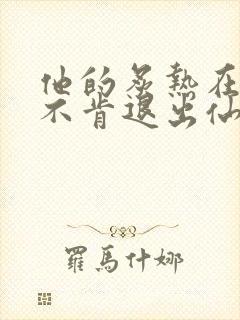 他的炙熱在
不肯退出仙
羅馬什娜